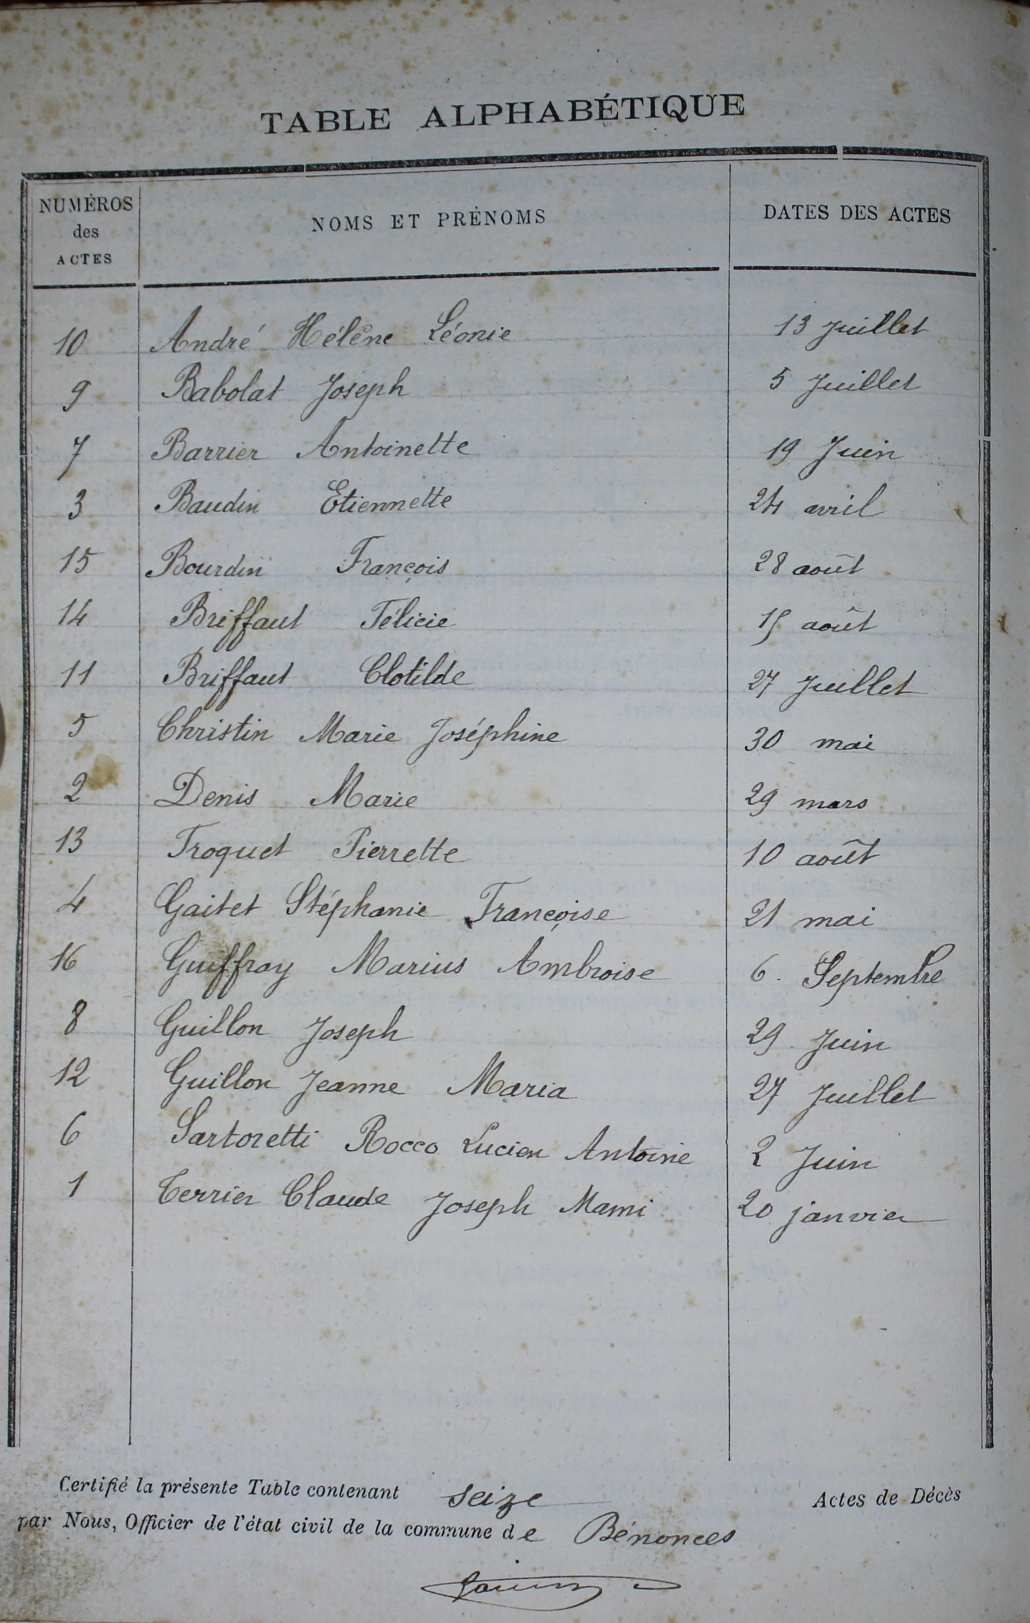 TABLE ALPHABÉTIQUE
NUMÉROS des ACTES NOMS ET PRÉNOMS DATES DES ACTES
10 André Hélène Léonie 13 Juillet
9 Babolat Joseph 5 Juillet
7 Barrier Antoinette 19 Juin
3 Baudin Etiennette 24 avril
15 Bourdin François 28 août
14 Briffaut Félicie 15 août
11 Briffaut Clotilde 27 Juillet
5 Christin Marie Joséphine 30 mai
2 Denis Marie 29 mars
13 Froquet Pierrette 10 août
4 Gaitet Stéphanie Françoise 21 mai
16 Guiffray Marius Ambroise 6 Septembre
8 Guillon Joseph 29 Juin
12 Guillon Jeanne Maria 27 Juillet
6 Sartoretti Rocco Lucien Antoine 2 Juin
1 Terrier Claude Joseph Mami 20 janvier
Certifié la présente Table contenant seize Actes de Décès
par Nous, Officier de l'état civil de la commune de Bénonces